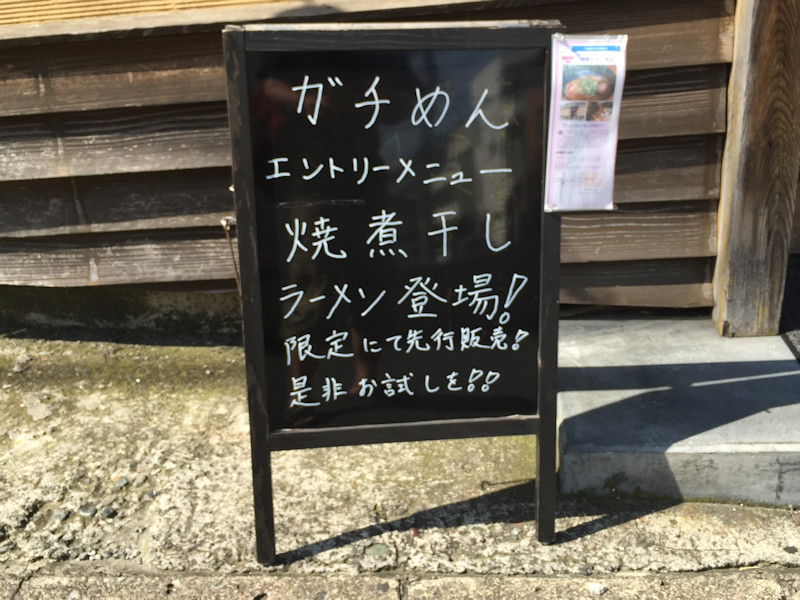 ガチめん
エントリーメニュー
焼煮干し
ラーメン登場!
限定にて先行販売!
是非お試しを!!